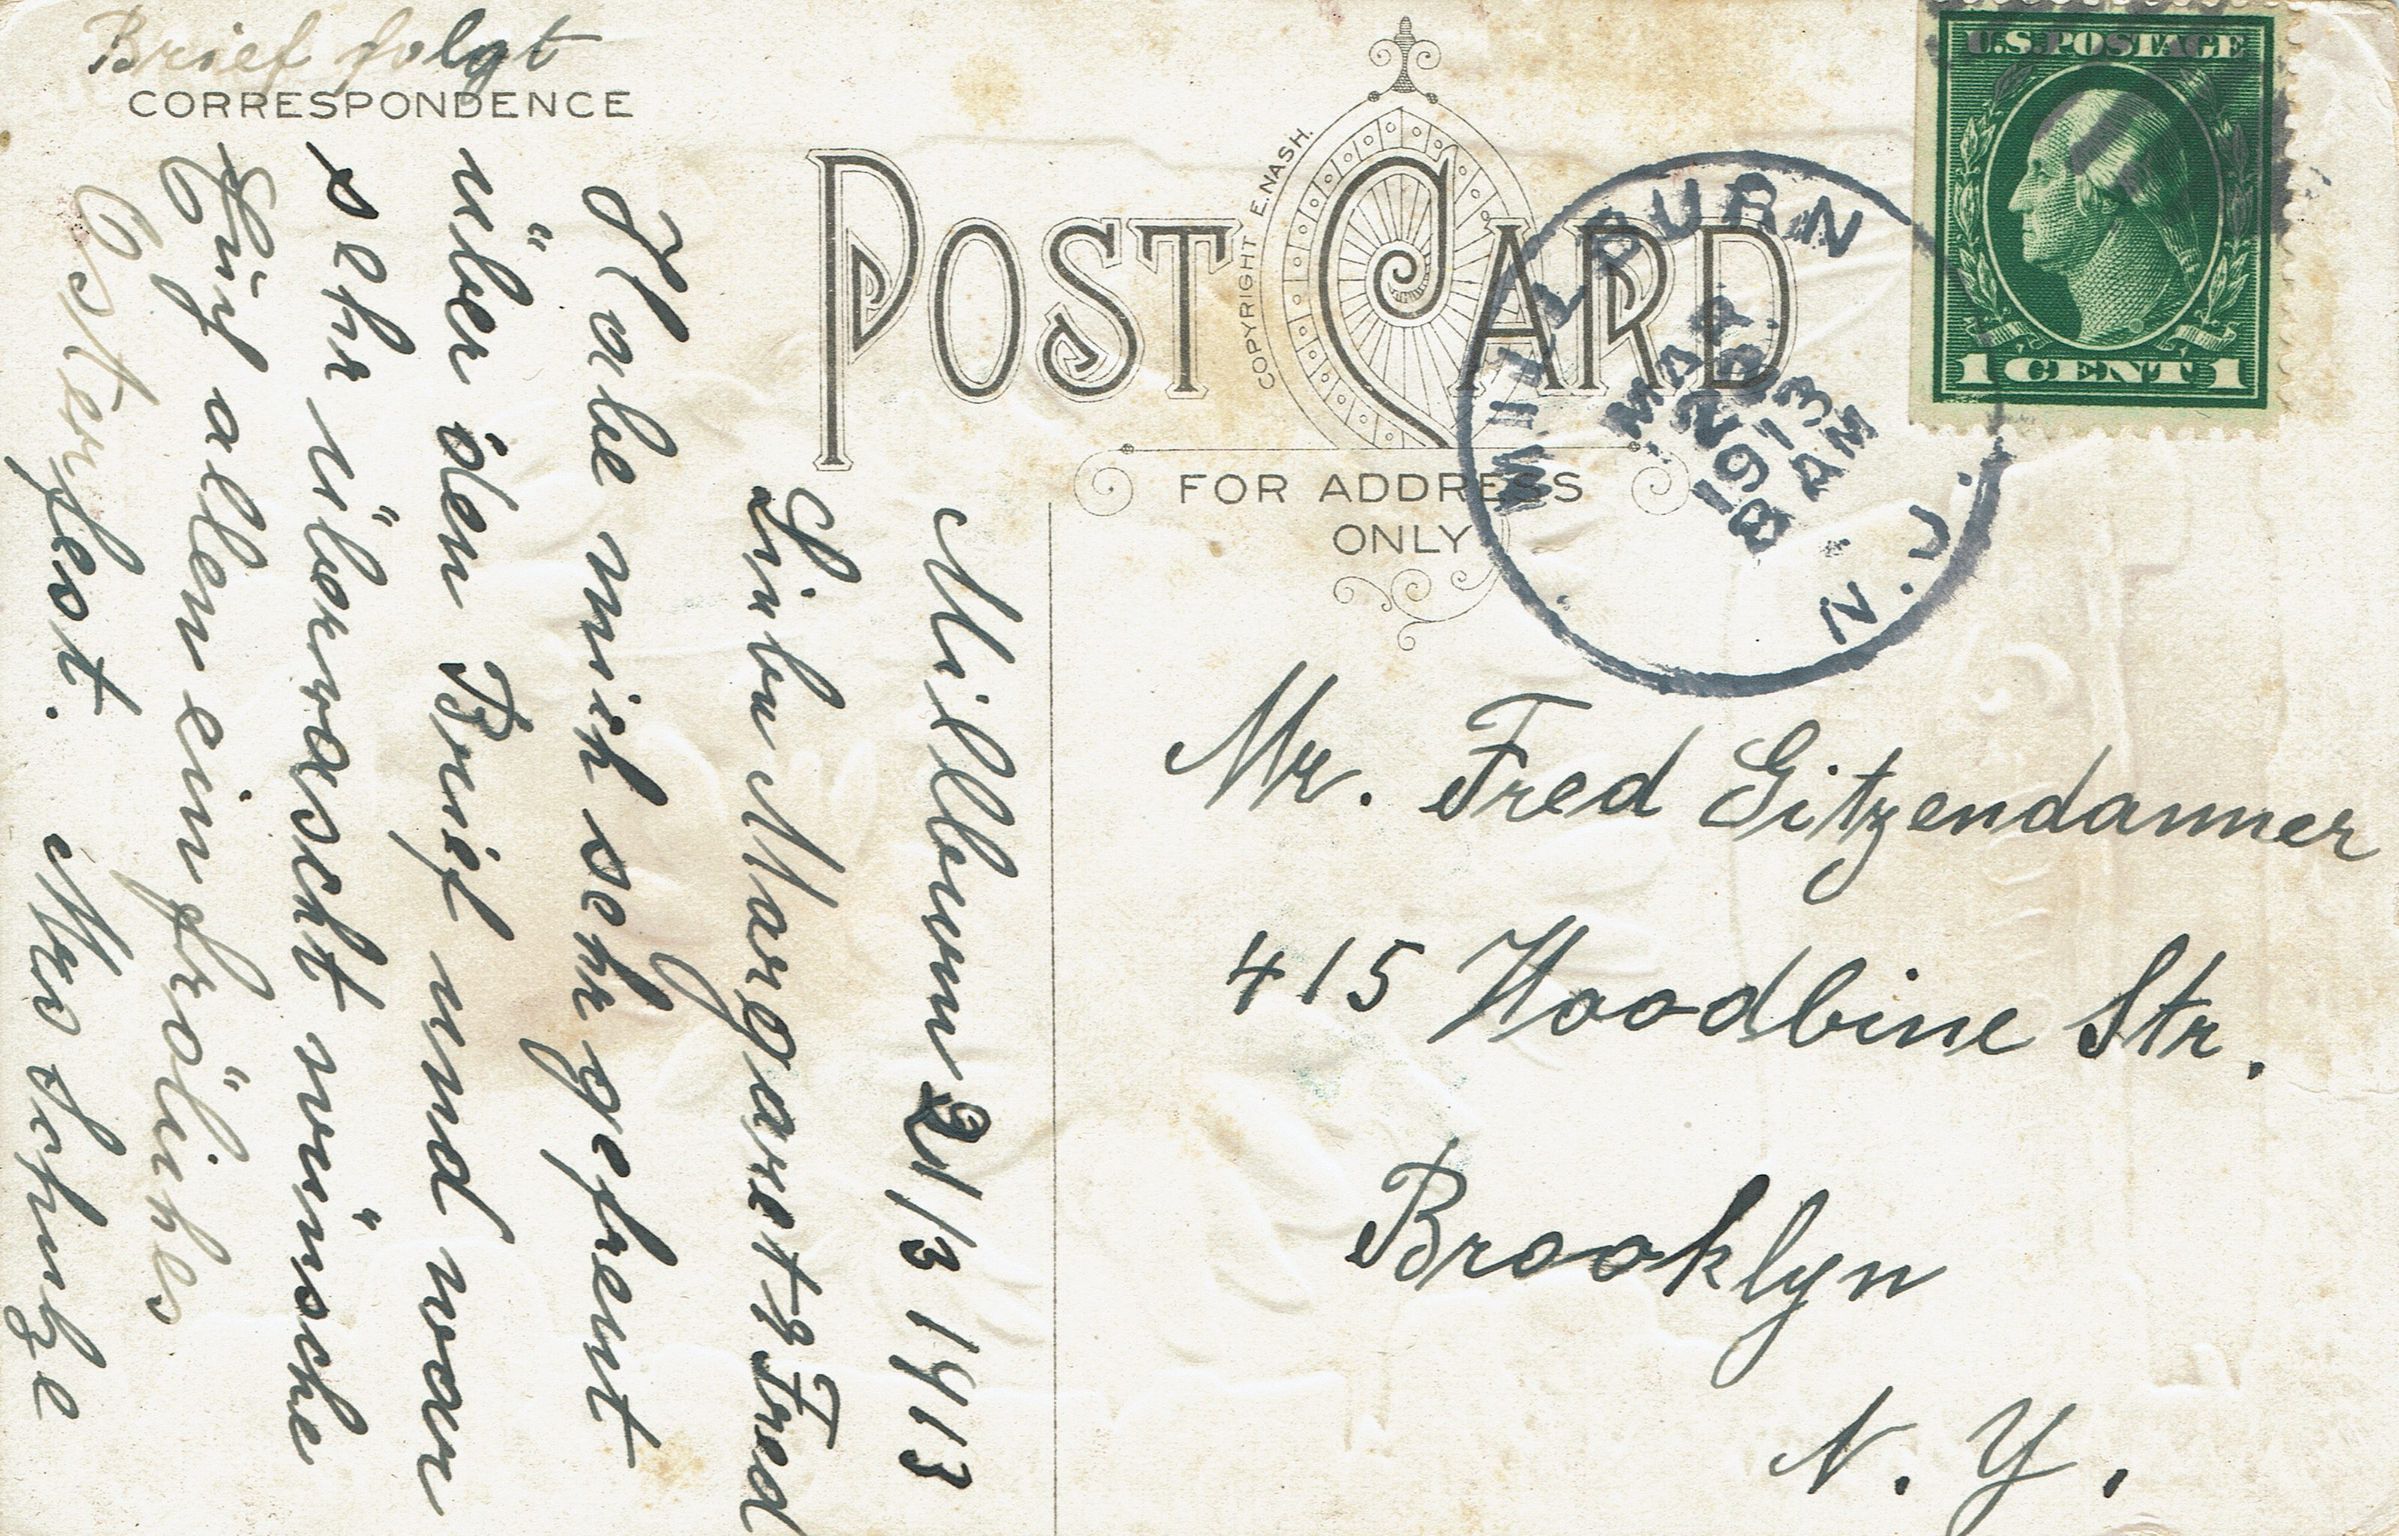 Brief folgt
CORRESPONDENCE
POST CARD
COPYRIGHT E. NASH.
FOR ADDRESS
ONLY
U.S. POSTAGE
1 CENT 1
MILLBURN
N.J.
MAR
1913
8 AM
Mr. Fred Gitzendanner
415 Woodbine Str.
Brooklyn
N. Y.
Millburn 21/3 1913
Liebe Margaret & Fred
Habe mich sehr gefreut
über den Brief und war
sehr überrascht wünsche
Euch allen ein fröliches
Osterfest. Mrs Schulze